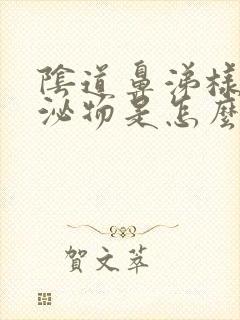 陰道鼻涕樣
泌物是怎麼
賀文萃